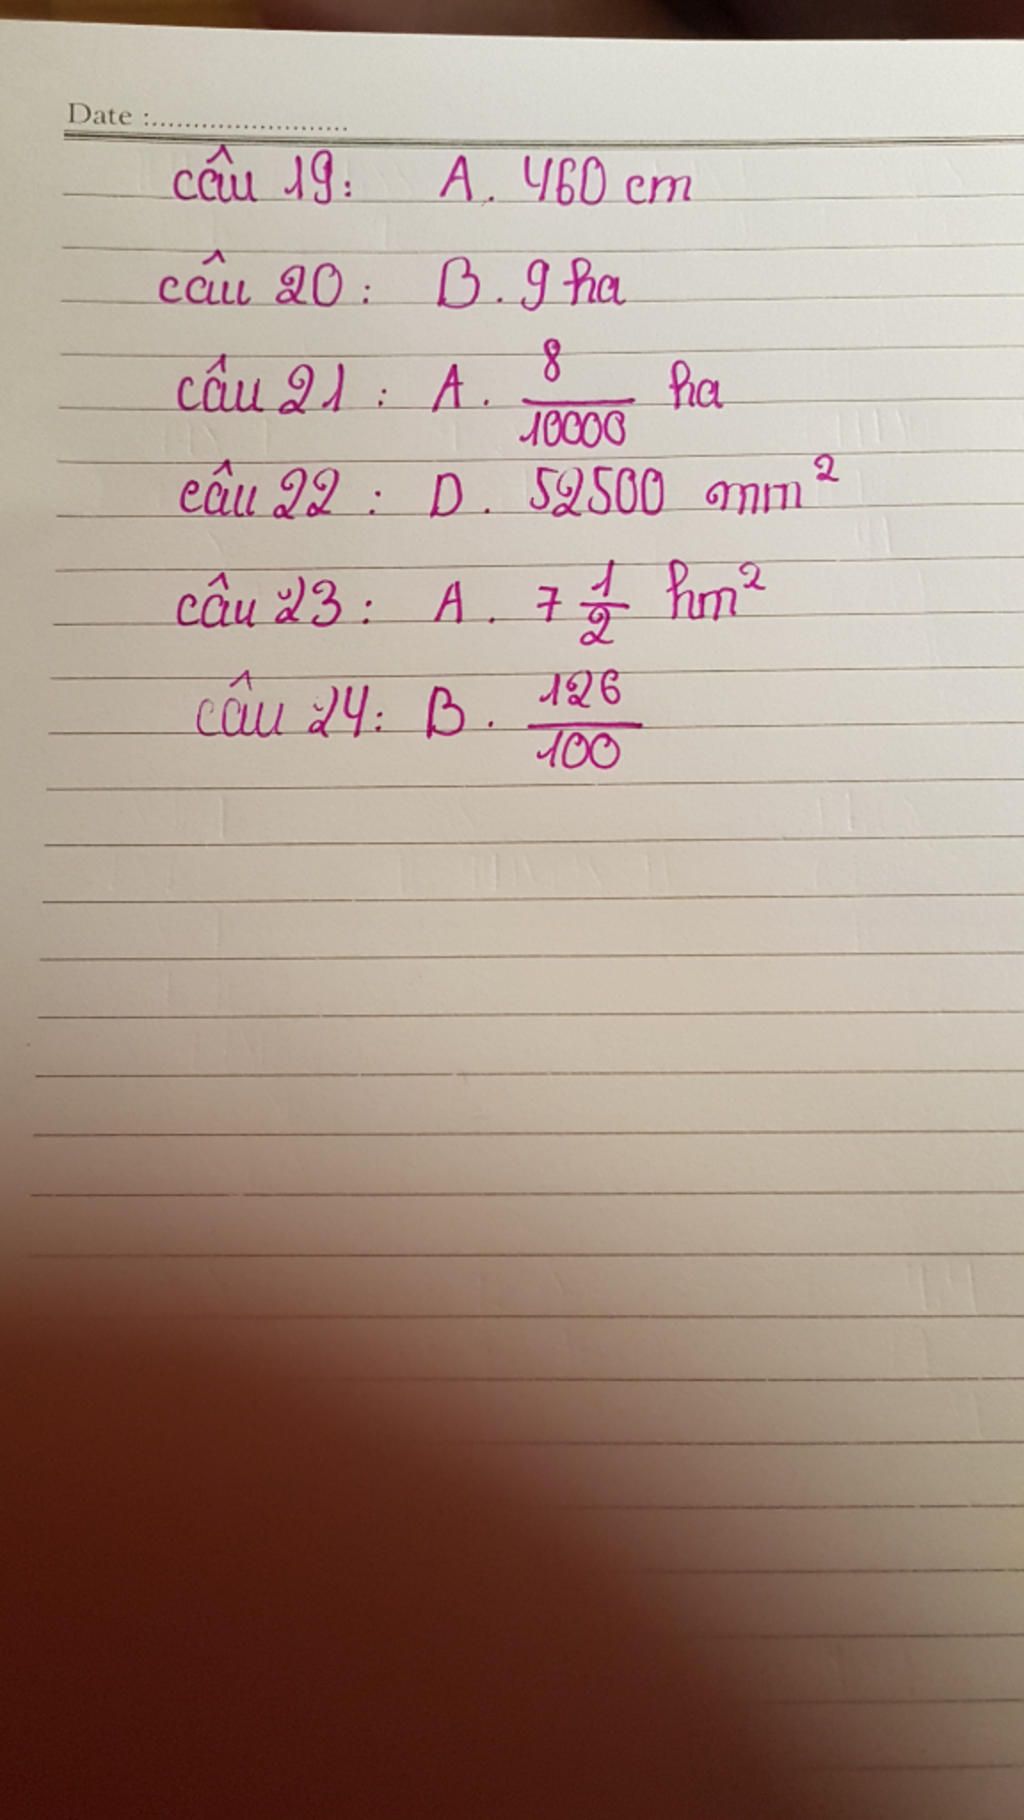 Date :........................
câu 19: A. 460 cm
câu 20: B. 9 ha
câu 21: A. 8/10000 ha
câu 22: D. 52500 mm²
câu 23: A. 7 1/2 hm²
câu 24: B. 126/100